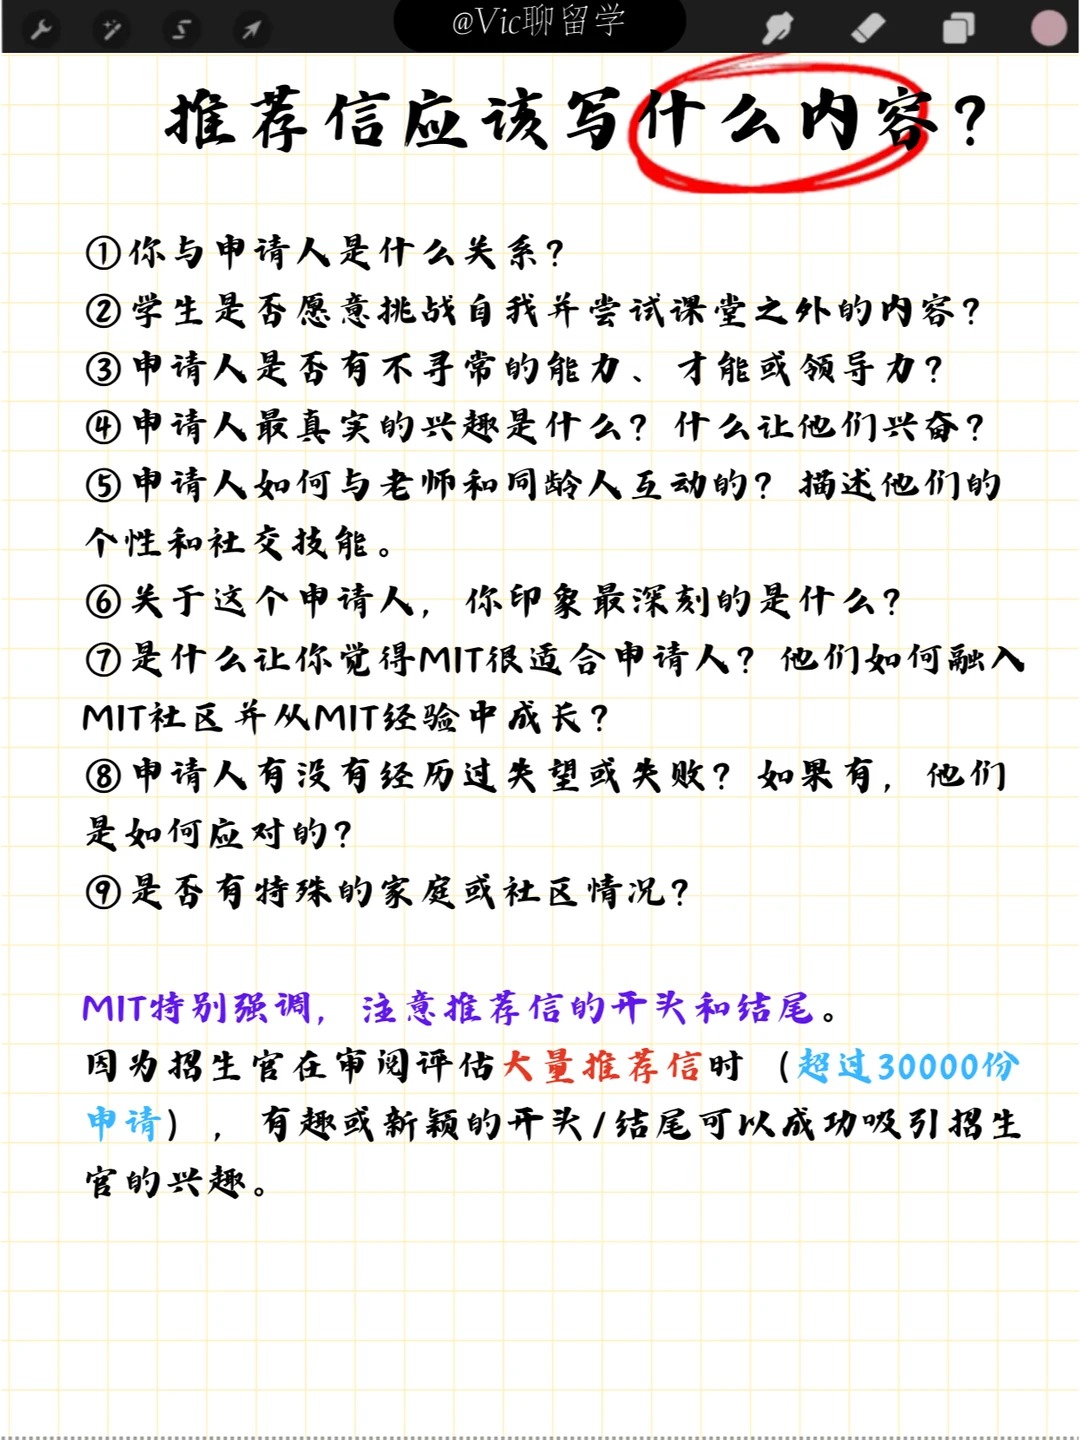 @Vic聊留学
推荐信应该写什么内容?
①你与申请人是什么关系?
②学生是否愿意挑战自我并尝试课堂之外的内容?
③申请人是否有不寻常的能力、才能或领导力?
④申请人最真实的兴趣是什么?什么让他们兴奋?
⑤申请人如何与老师和同龄人互动的?描述他们的
个性和社交技能。
⑥关于这个申请人,你印象最深刻的是什么?
⑦是什么让你觉得MIT很适合申请人?他们如何融入
MIT社区并从MIT经验中成长?
⑧申请人有没有经历过失望或失败?如果有,他们
是如何应对的?
⑨是否有特殊的家庭或社区情况?
MIT特别强调,注意推荐信的开头和结尾。
因为招生官在审阅评估大量推荐信时(超过30000份
申请),有趣或新颖的开头/结尾可以成功吸引招生
官的兴趣。